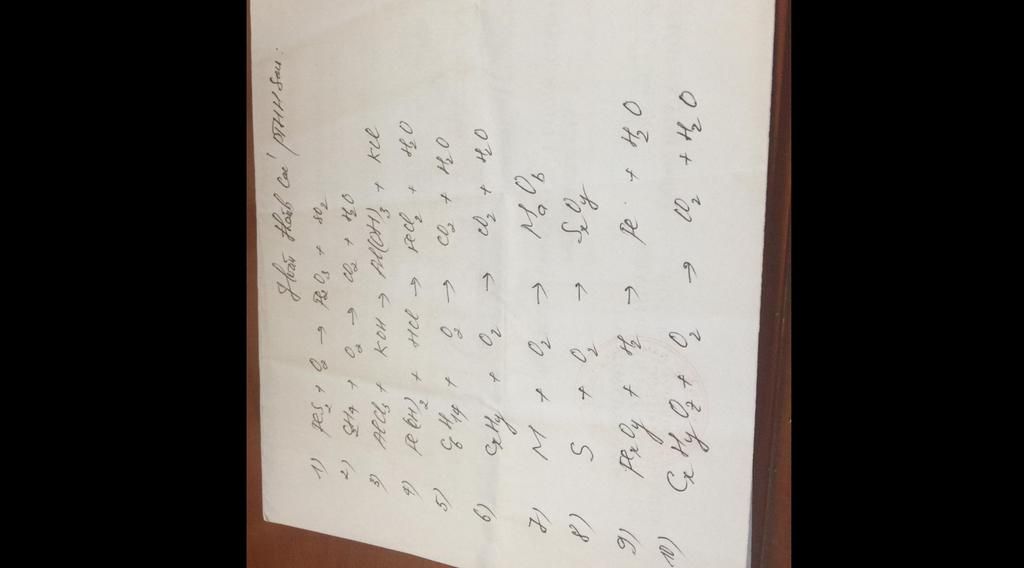 Hoàn thành các PTHH sau:
1) FeS2 + O2 → Fe2O3 + SO2
2) C2H4 + O2 → CO2 + H2O
3) AlCl3 + KOH → Al(OH)3 + KCl
4) Fe(OH)2 + HCl → FeCl2 + H2O
5) C6H14 + O2 → CO2 + H2O
6) CxHy + O2 → CO2 + H2O
7) M + O2 → MaOb
8) S + O2 → SxOy
9) FexOy + H2 → Fe + H2O
10) CxHyOz + O2 → CO2 + H2O